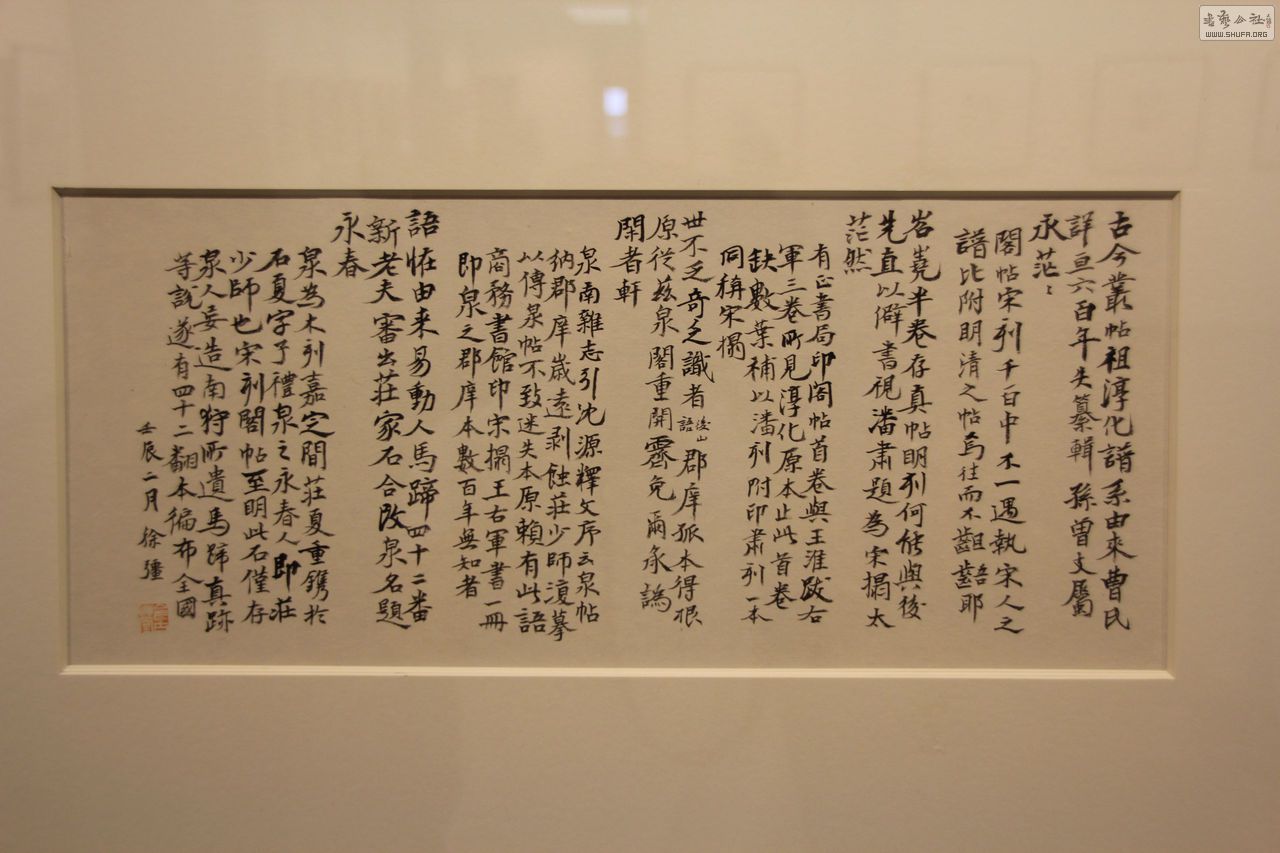 古今叢帖祖淳化譜系由來曹氏
詳亘六百年失纂輯孫曾支屬
永茫〻
閣帖宋刻千百中不一遇執宋人之
譜比附明清之帖烏往而不齟齬耶
岧嶤半卷存真帖明刻何能與後
先直以僻書視潘肅題為宋搨太
茫然
有正書局印閣帖首卷與王淮跋右
軍三卷所見淳化原本止此首卷
缺數葉補以潘刻附印肅刻一本
同稱宋搨
世不乏奇乏識者後山語郡庠孤本得根
原從茲泉閣重開霽免爾承譌
閑者軒
泉南雜志引沈源釋文序云泉帖
納郡庠歲遠剥蝕莊少師復摹
以傳泉帖不致迷失本原賴有此語
商務書館印宋搨王右軍書一冊
即泉之郡庠本數百年無知者
語恠由来易動人馬蹄四十二番
新老夫審出莊家石合改泉名題
永春
泉為木刻嘉定間莊夏重鐫於
石夏字子禮泉之永春人即莊
少師也宋刻閣帖至明此石僅存
泉人妄造南狩所遺馬蹄真跡
等説遂有四十二翻本徧布全國
壬辰二月 徐彊
書藝公社
WWW.SHUFA.ORG